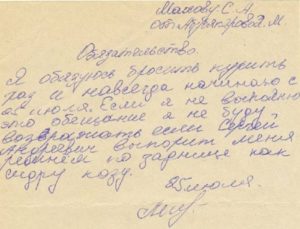 Махову С. А.
от Музякаровой М.
Обязательство.
Я обязуюсь бросить курить
раз и навсегда начиная с
25 июля. Если я не выполню
это обещание я не буду
возражать если Сергей
Андреевич выпорит меня
ремнём по заднице как
сидру козу.
25 июля.